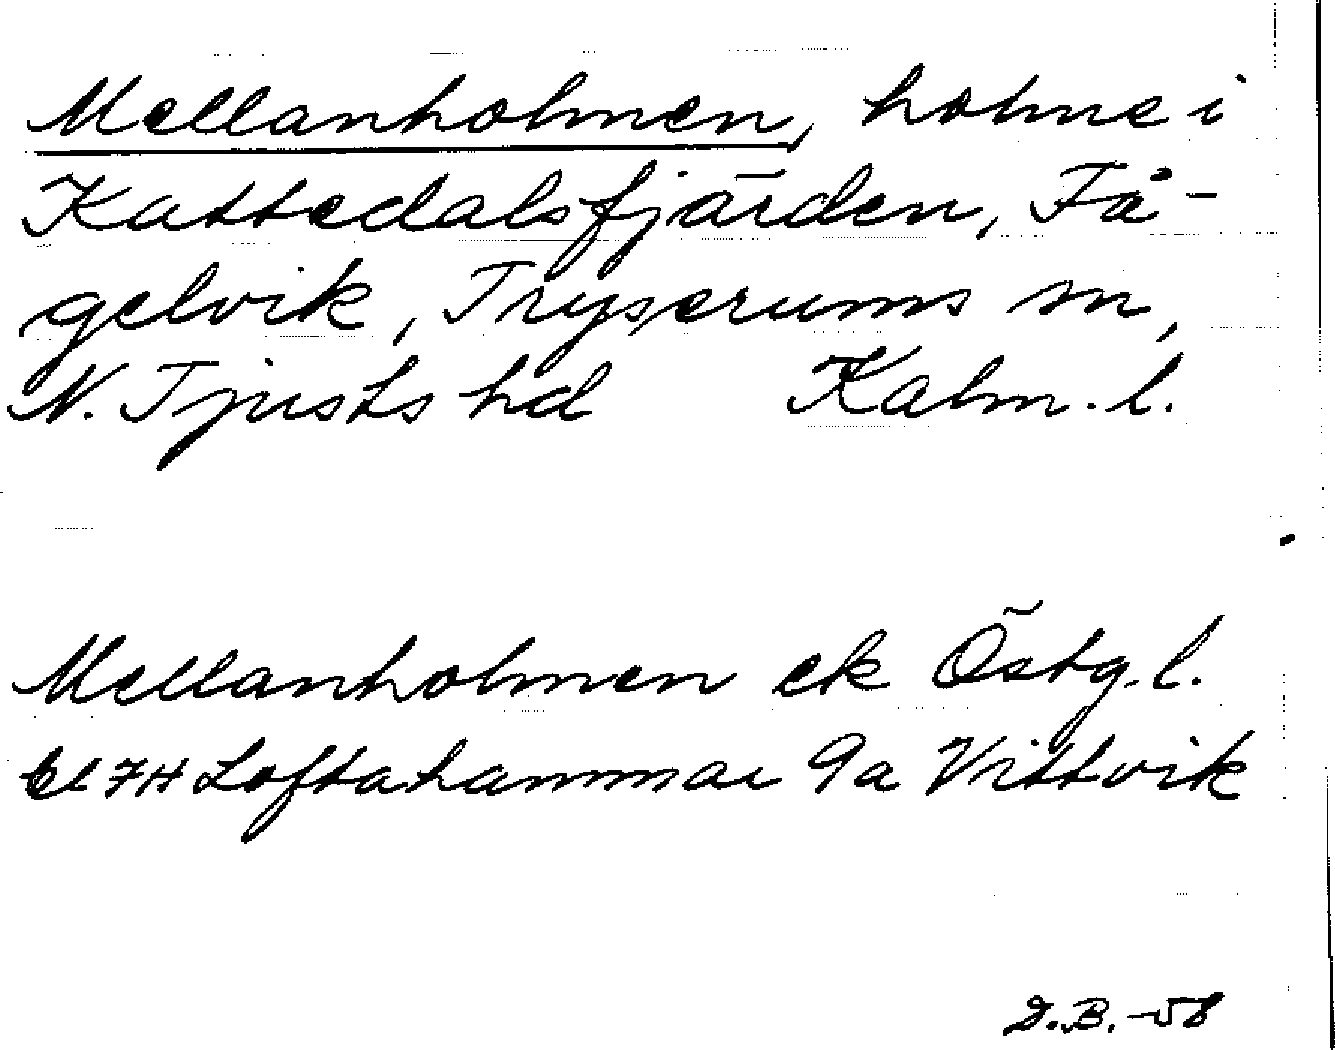 Mellanholmen, holme i
Kattedalsfjärden, Få-
gelvik, Tryserums sn,
N. Tjusts hd Kalm. l.
Mellanholmen ek Östg. l.
bl 7H Loftahammar 9a Vittvik
D.B. -58